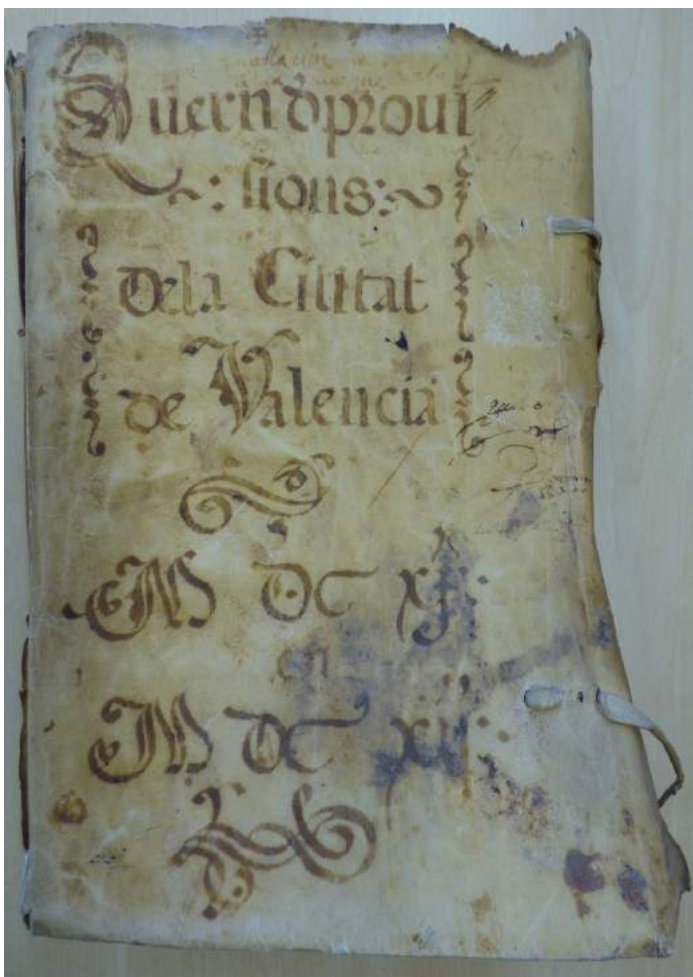 Quern d proui
sions
dela Ciutat
de Valencia
M DC XJ
en
M DC XII